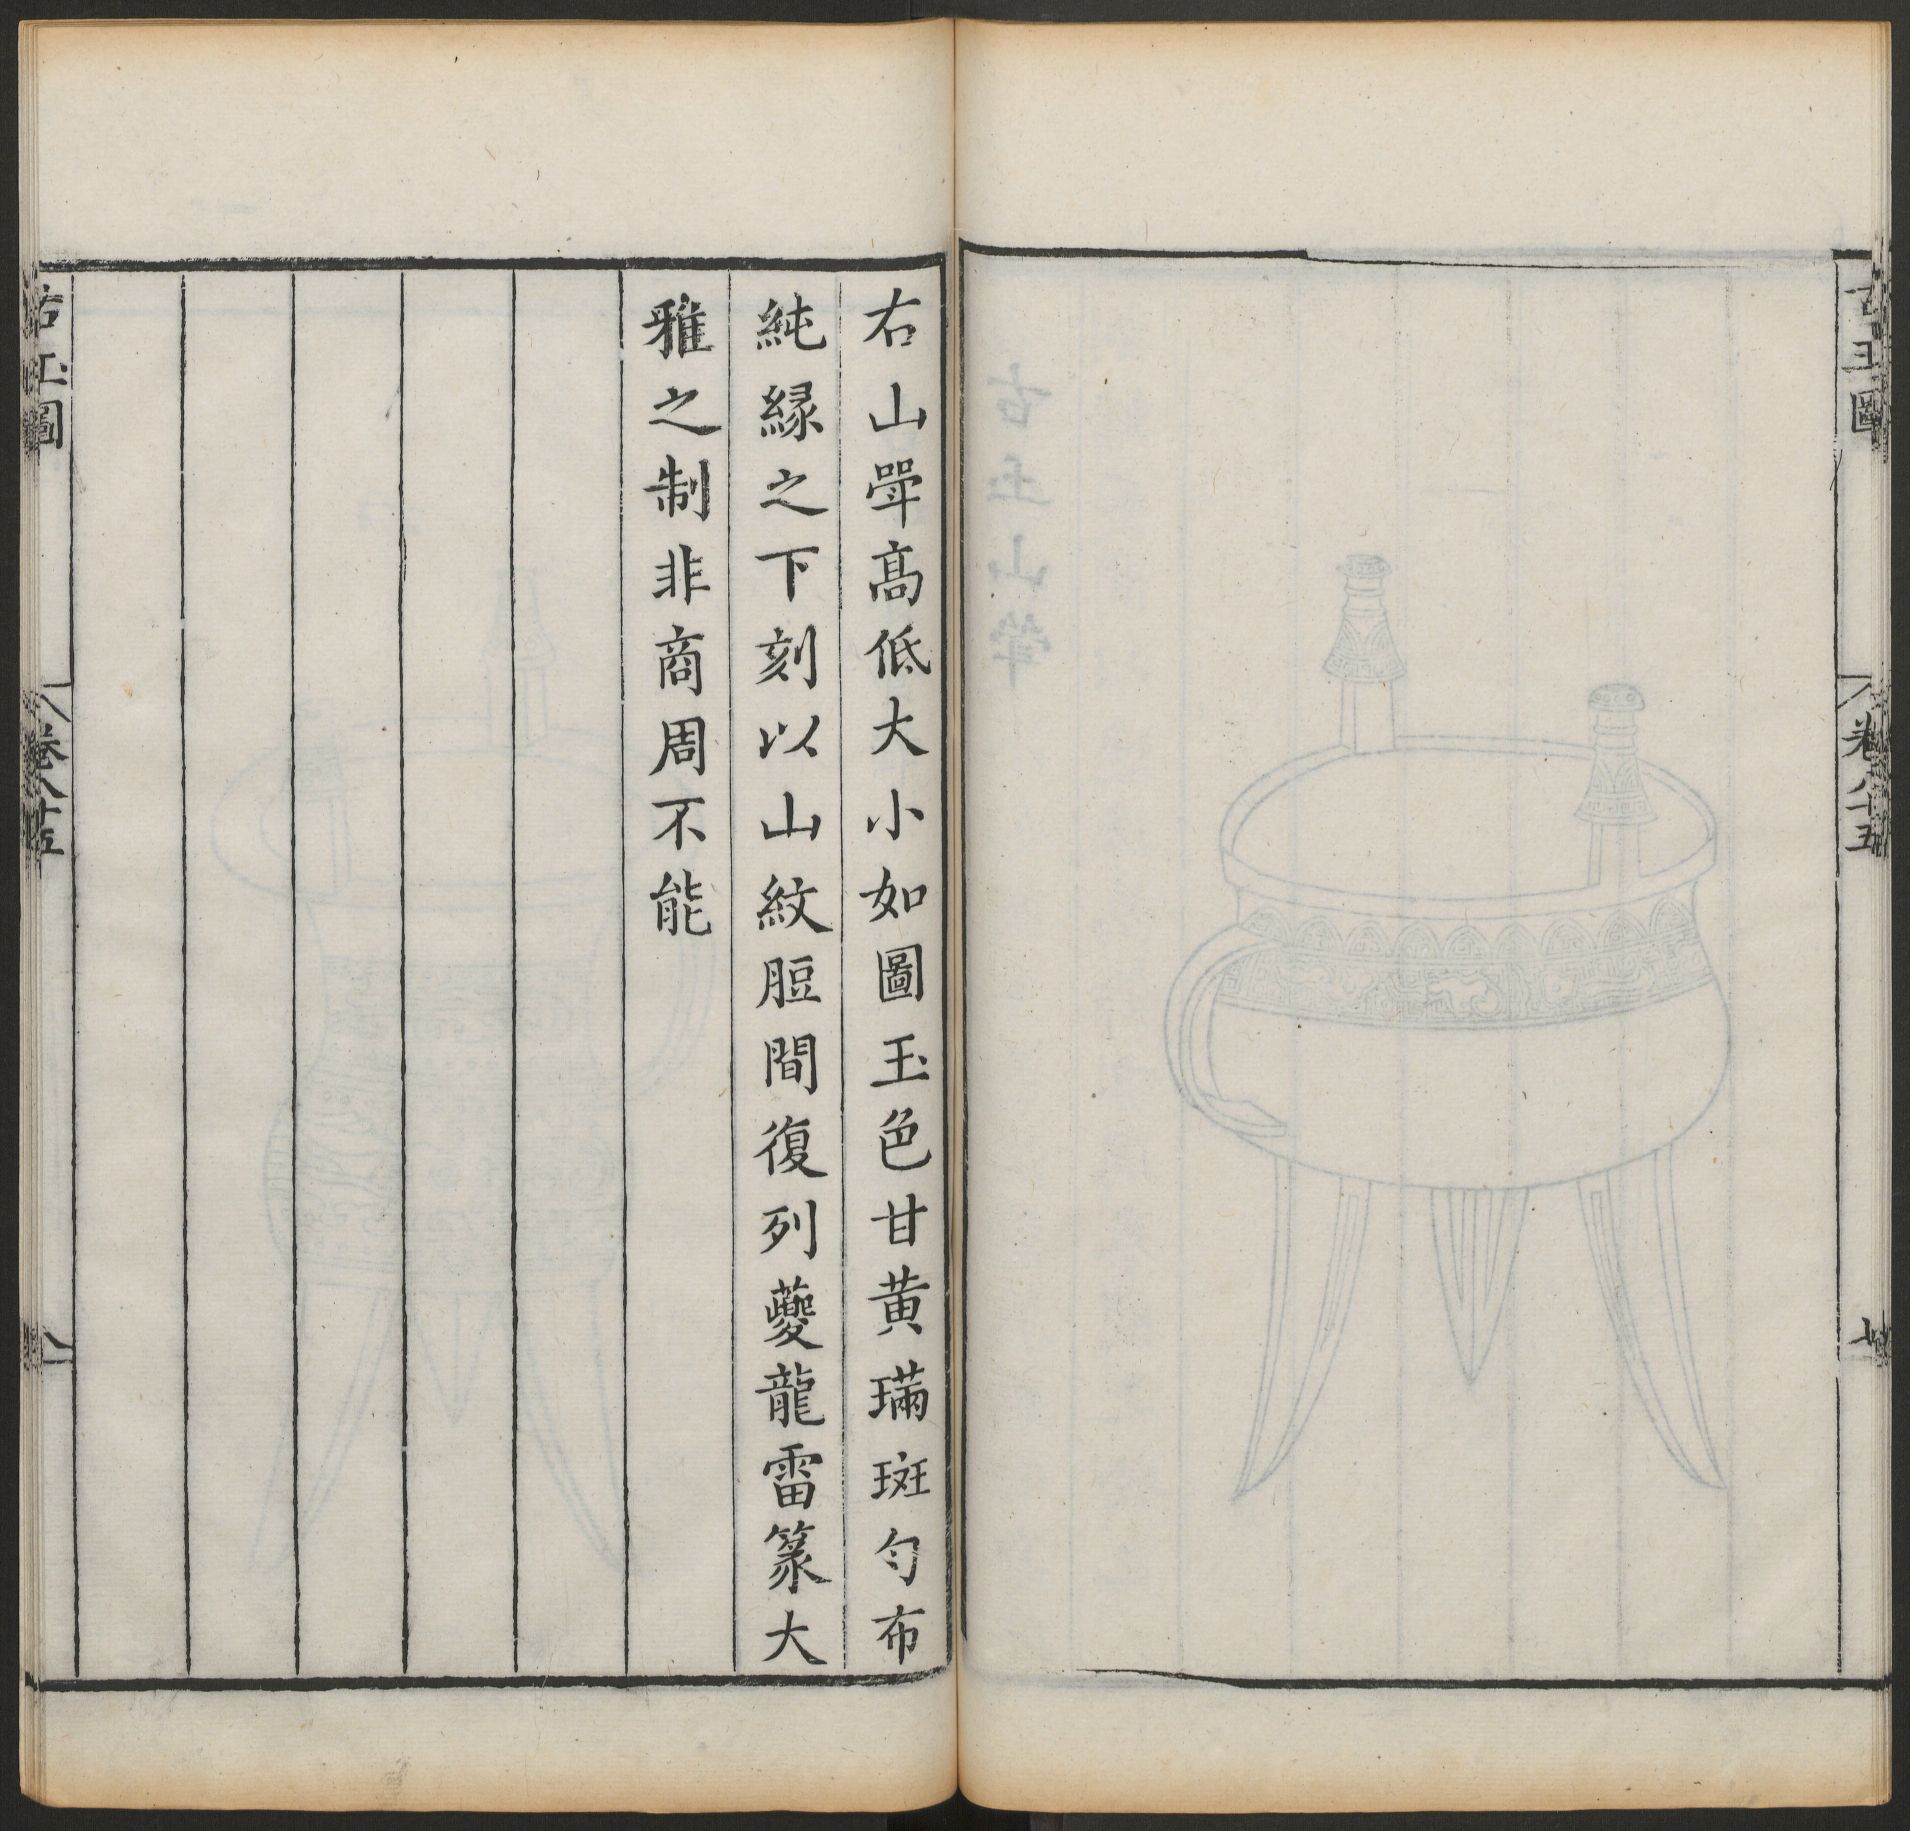 古玉圖
卷八十五
七
右山斝高低大小如圖玉色甘黃璊斑勻布
純緣之下刻以山紋脰間復列夔龍雷篆大
雅之制非商周不能
古玉圖
卷八十五
八